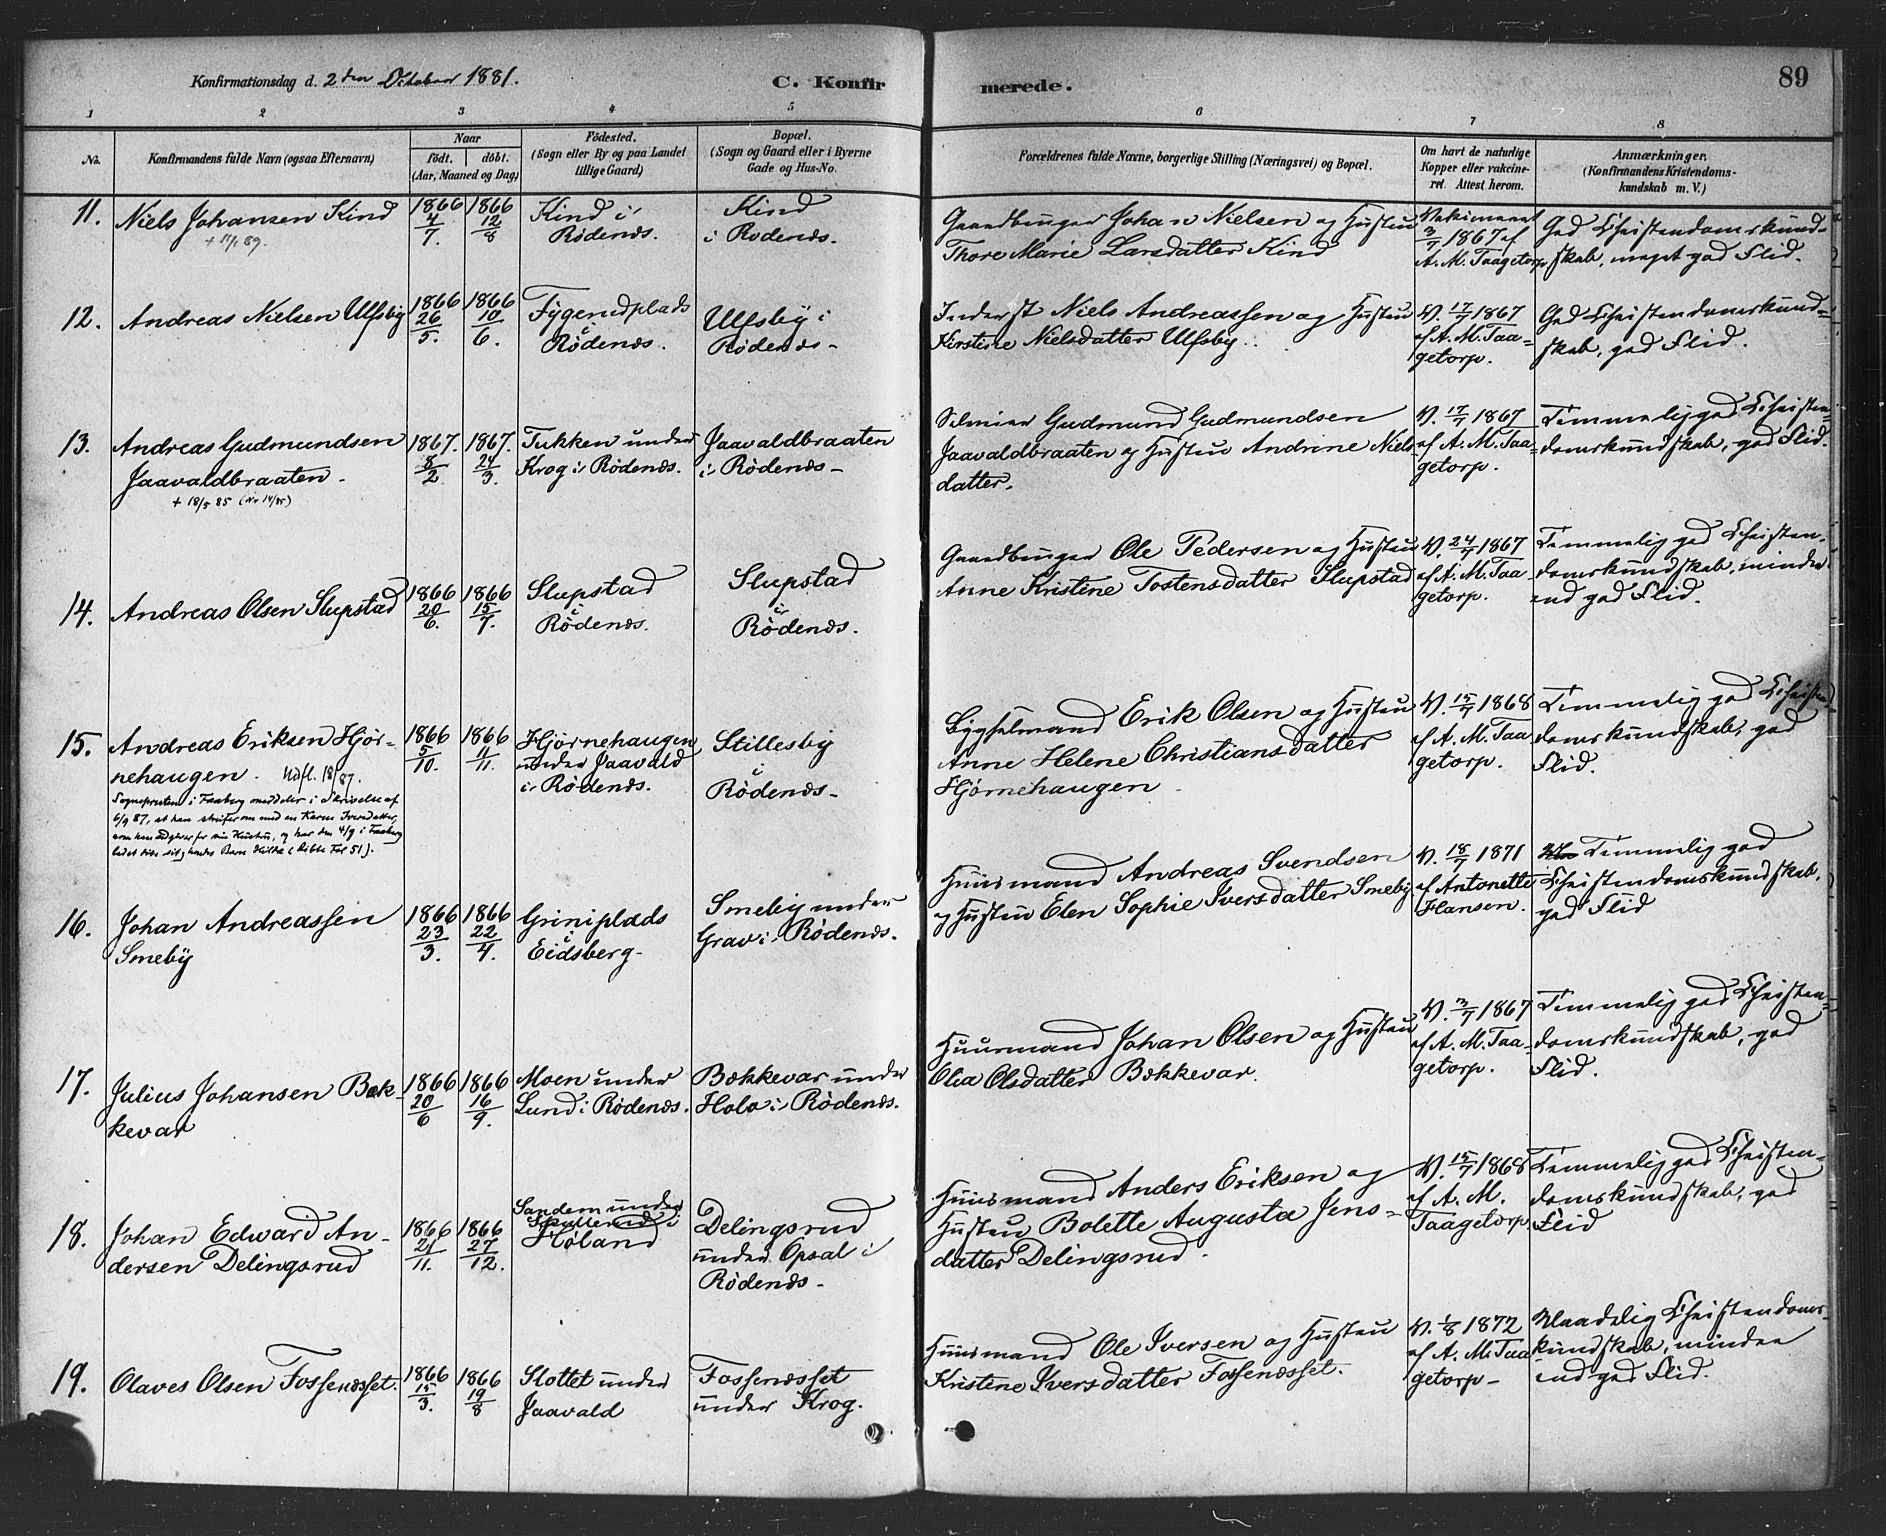 Konfirmationsdag d. 2den Oktober 1881.
C. Konfir
merede.
89
1 2 3 4 5 6 7 8
No.
Konfirmandens fulde Navn (ogsaa Efternavn)
Naar
födt. döbt.
(Aar, Maaned og Dag)
Födested.
(Sogn eller By og paa Landet
tillige Gaard)
Bopæl.
(Sogn og Gaard eller i Byerne
Gade og Hus-No.
Forældrenes fulde Navne, borgerlige Stilling (Næringsvei) og Bopæl.
Om havt de naturlige
Kopper eller vakcine-
ret. Attest herom.
Anmærkninger.
(Konfirmandens Kristendoms-
kundskab m. V.)
11.
Niels Johansen Kind
1866 4/7.
1866 12/8
Kind i
Rødenæs.
Kind
i Rødenæs.
Gaardbruger Johan Nielsen og Hustru
Thore Marie Larsdatter Kind
3/7 1867 af
A. M. Taagetorp
God Christendomskund-
skab, meget god Flid.
12.
Andreas Nielsen Ulfsby
1866 26/5.
1866 10/6.
i
Rødenæs.
Ulfsby i
Rødenæs-
Inderst Niels Andreassen og Hustru
Kirstine Nielsdatter Ulfsby.
V. 17/7 1867
af A. M. Taa-
getorp.
God Christendomskund-
skab, god Flid.
13.
Andreas Gudmundsen
Jaavaldbraaten.
+ 18/5 85 (No 14/85)
1867. 8/2
1867. 24/3.
Tukken under
Krog i Rødenæs.
Jaavaldbraaten
i Rødenæs-
Gudmund Gudmundsen
Jaavaldbraaten og Hustru Andrine Niels-
datter.
V. 17/7 1867
af A. M. Taa-
getorp.
Temmelig god Christen-
domskundskab, god Flid.
14.
Andreas Olsen Slupstad
1866 20/6.
1866 15/7.
Slupstad
i
Rødenæs.
Slupstad
i
Rødenæs.
Gaardbruger Ole Pedersen og Hustru
Anne Kristine Tostensdatter Slupstad
V. 24/7 1867
af A. M. Taa-
getorp.
Temmelig god Christen-
domskundskab, mindre
end god Flid.
15.
Andreas Eriksen Hjør-
nehaugen. Udfl. 18/ 87.
Sognepresten i Faaberg meddeler i Skrivelse af
6/9 87, at han streifer om med en Karen Iversdatter,
som han udgiver for sin Hustru, og har den 4/9 i Faaberg
ladet døbe sit og hendes Barn Hilda (Døbte Fol 51).
1866 5/10.
1866 4/11.
Hjørnehaugen
under Jaavald
i Rødenæs.
Stillesby
i
Rødenæs-
Bygselmand Erik Olsen og Hustru
Anne Helene Christiansdatter
Hjørnehaugen
V. 15/7 1868
af A. M. Taa
getorp.
Temmelig god Christen
domskundskab, god
Flid.
16.
Johan Andreassen
Smeby
1866 23/3.
1866 22/4.
Griniplads
i
Eidsberg-
Smeby under
Grav i Rødenæs.
Huusmand Andreas Svendsen
og Hustru Elen Sophie Iversdatter Smeby
V. 18/7 1871
af Antonette
Hansen.
Temmelig god
Christendomskundskab,
god Flid
17.
Julius Johansen Bæk-
kevar
1866 20/6
1866 16/9.
Moen under
Lund i Rødenæs.
Bækkevar under
Holo i Rødenæs.
Huusmand Johan Olsen og Hustru
Olia Olsdatter Bækkevar.
V. 3/7 1867
af A. M. Taa-
getorp.
Temmelig god Christen-
domskundskab, god
Flid.
18.
Johan Edward An-
dersen Delingsrud
1866 21/11.
1866 27/12.
Sandem under
i
Høland
Delingsrud
under Opsal i
Rødenæs-
Huusmand Anders Eriksen og
Hustru Bolette Augusta Jens-
datter Delingsrud.
V. 15/7 1868
af A. M.
Taagetorp
Temmelig god Christen-
domskundskab, god
Flid
19.
Olaves Olsen Fossenæsset.
1866 15/3.
1866 19/8
Slottet under
Jaavald
Fossenæsset
under Krog.
Huusmand Ole Iversen og Hustru
Kristine Iversdatter Fossenæsset.
V. 1/8 1872
af A. M. Taa
getorp-
Maadelig Christendoms-
kundskab, mindre
end god Flid.